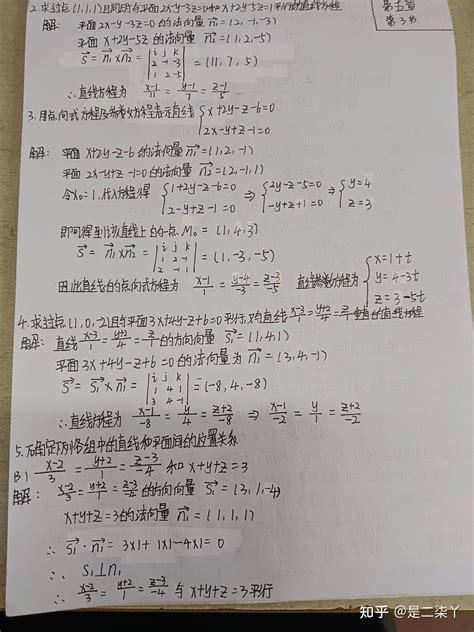 2.求过点(1,1,1)且同时与平面2x-y-3z=0和x+2y-5z=1平行的直线方程
第五章
第3节
解: 平面2x-y-3z=0的法向量 n₁=(2,-1,-3)
平面 x+2y-5z 的法向量 n₂=(1,2,-5)
s=n₁×n₂= |i j k; 2 -1 -3; 1 2 -5| = (11,7,5)
∴直线方程为 (x-1)/11=(y-1)/7=(z-1)/5
3.用点向式方程及参数方程表示直线 {x+2y-z-6=0
2x-y+z-1=0
解: 平面 x+2y-z-6 的法向量 n₁=(1,2,-1)
平面 2x-y+z-1=0的法向量 n₂=(2,-1,1)
令x₀=1,代入方程得 {1+2y-z-6=0 2-y+z-1=0 ⇒ {2y-z-5=0 -y+z+1=0 ⇒ {y=4 z=3
即可得到该直线上的一点 M₀=(1,4,3)
s=n₁×n₂= |i j k; 1 2 -1; 2 -1 1| = (1,-3,-5)
因此直线的点向式方程为 (x-1)/1=(y-4)/-3=(z-3)/-5 直线参数方程为 {x=1+t y=4-3t z=3-5t
4.求过点(1,0,-2)且与平面3x+4y-z+6=0平行,又与直线 (x-3)/1=(y+2)/4=z/1 垂直的直线方程
解: 直线 (x-3)/1=(y+2)/4=z/1 的方向向量 s₁=(1,4,1)
平面 3x+4y-z+6=0 的法向量为 n₁=(3,4,-1)
s=s₁×n₁= |i j k; 1 4 1; 3 4 -1| =(-8,4,-8)
∴直线方程为 (x-1)/-8=y/4=(z+2)/-8 ⇒ (x-1)/-2=y/1=(z+2)/-2
5.确定下列各组中的直线和平面间的位置关系
(3) (x-2)/3=(y+2)/1=(z-3)/-4 和x+y+z=3
解: (x-2)/3=(y+2)/1=(z-3)/-4 的方向向量 s₁=(3,1,-4)
x+y+z=3的法向量 n₁=(1,1,1)
∴ s₁·n₁=3×1+1×1-4×1=0
∴ s₁⊥n₁
∴ (x-2)/3=(y+2)/1=(z-3)/-4 与 x+y+z=3平行
知乎 @是二柒丫